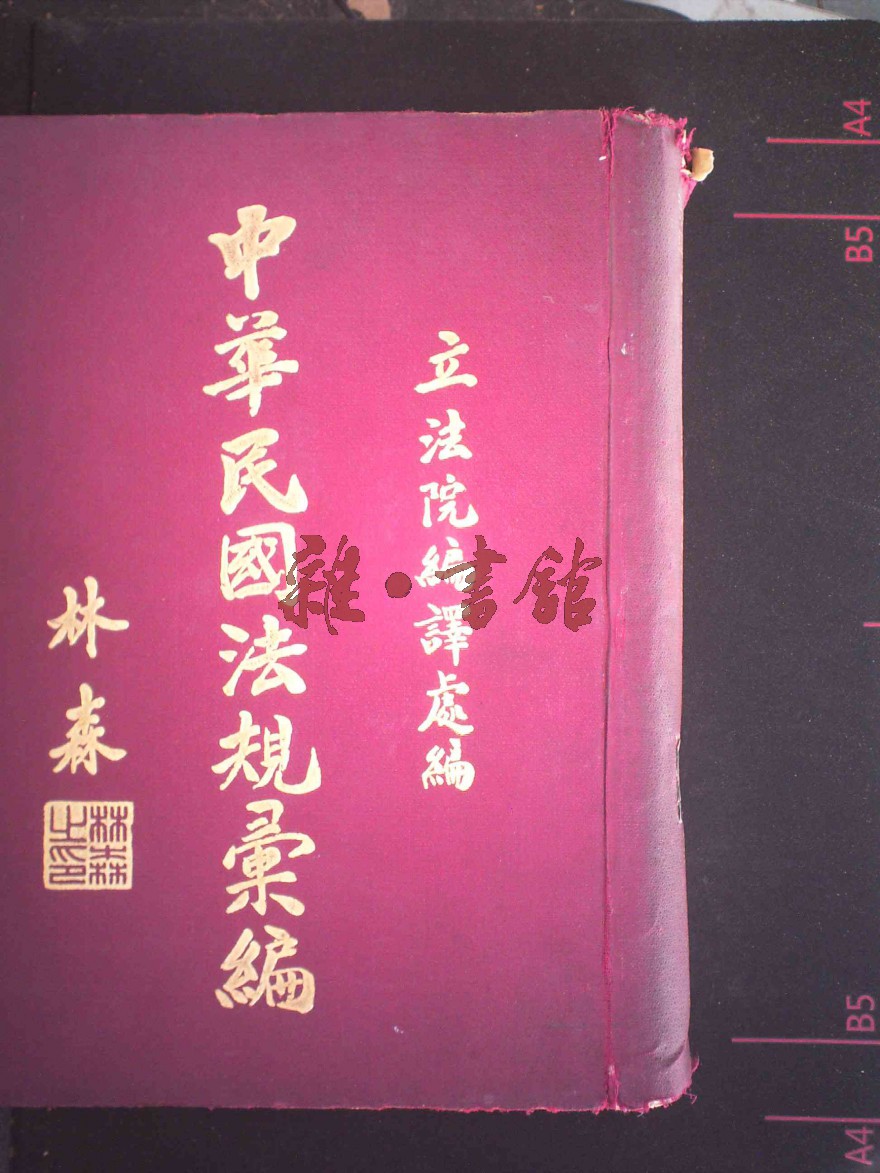 立法院編譯處編
中華民國法規彙編
林森
林森之印
雜·書館
A4
B5
B5
A4